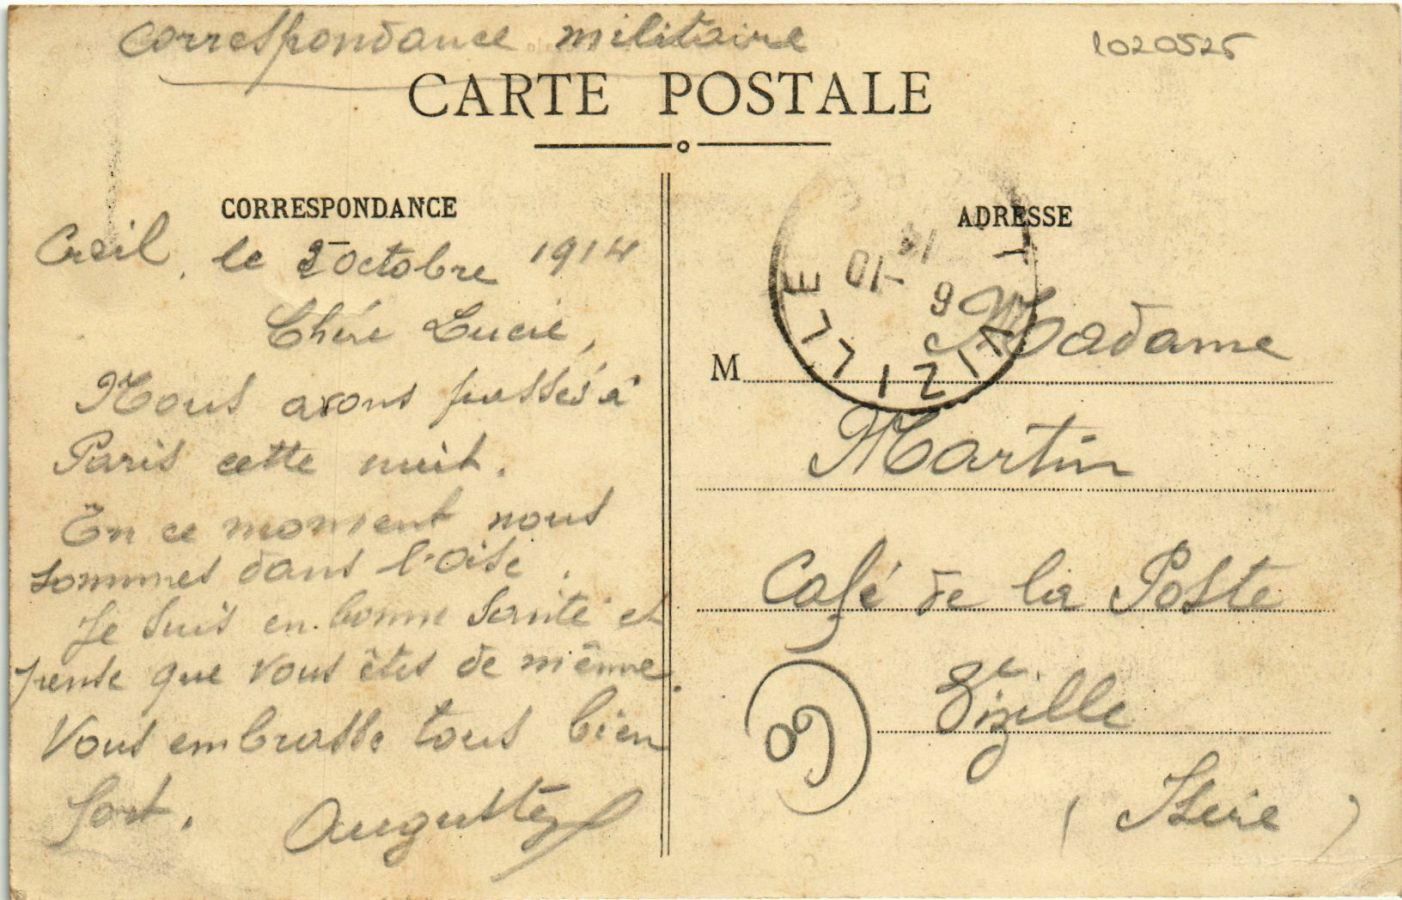 Correspondance militaire
1020525
CARTE POSTALE
CORRESPONDANCE
Creil, le 2 octobre 1914
Chére Lucie,
Nous avons passés à
Paris cette nuit.
En ce moment nous
sommes dans l'Oise.
Je suis en bonne santé et
pense que vous êtes de même.
Vous embrasse tous bien
fort. Auguste
ADRESSE
VIZILLE
6 -10
14
M Madame
Martin
Café de la Poste
Vizille
(Isère)